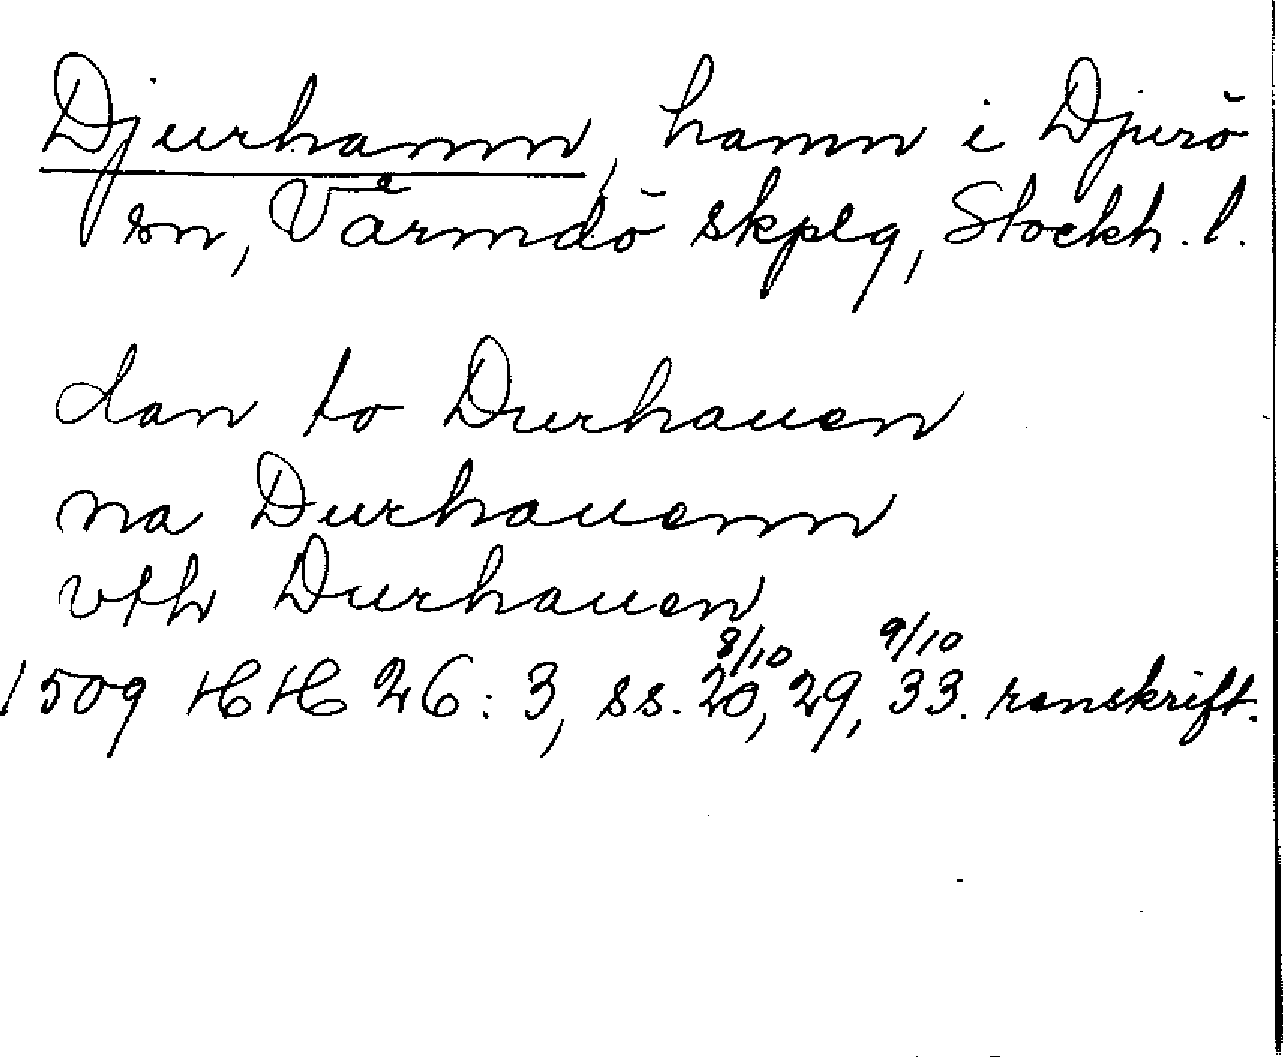 Djurhamn, hamn i Djurö
sn, Värmdö skplg, Stockh. l.
dan to Durhauen
na Durhauenn
vth Durhauen
8/10 9/10
1509 HH 26: 3, ss. 20, 29, 33. renskrift.